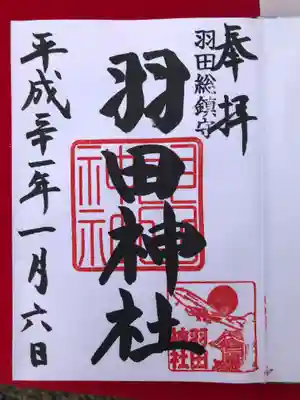 奉拝
羽田総鎮守
羽田神社
平成三十一年一月六日
羽田神社